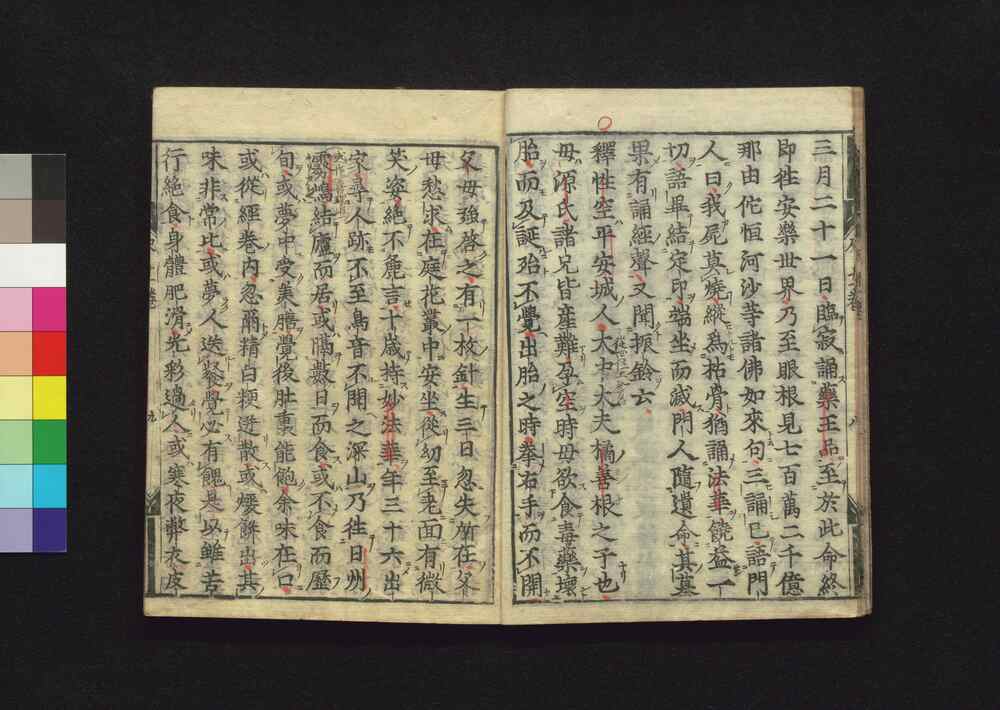 三月二十一日臨寂誦藥王品至於此命終
即徃安樂世界乃至眼根見七百萬二千億
那由佗恒河沙等諸佛如來句三誦已語門
人曰我屍莫燒縱為枯骨猶誦法華饒益一
切語畢結定印端坐而滅門人隨遺命其墓
果有誦經聲又聞振鈴云
釋性空平安城人大中大夫橘善根之子也
母源氏諸兄皆産難孕空時母欲食毒藥壞
胎而及誕殆不覺出胎之時拳右手而不開
父母強啓之有一枚針生三日忽失所在父
母愁求在庭花叢中安坐從幼至老面有微
笑姿絶不麁言十歳持妙法華年三十六出
家尋人跡不至鳥音不聞之深山乃徃日州
霧嶋結廬而居或隔數日而食或不食而歷
旬或夢中受美膳覺後肚裏能飽余味在口
或從經巻内忽爾精白粳迸散或煖餅出其
味非常比或夢人送餐覺必有餽是以雖苦
行絶食身體肥滑光彩過人人或寒夜弊衣皮
九